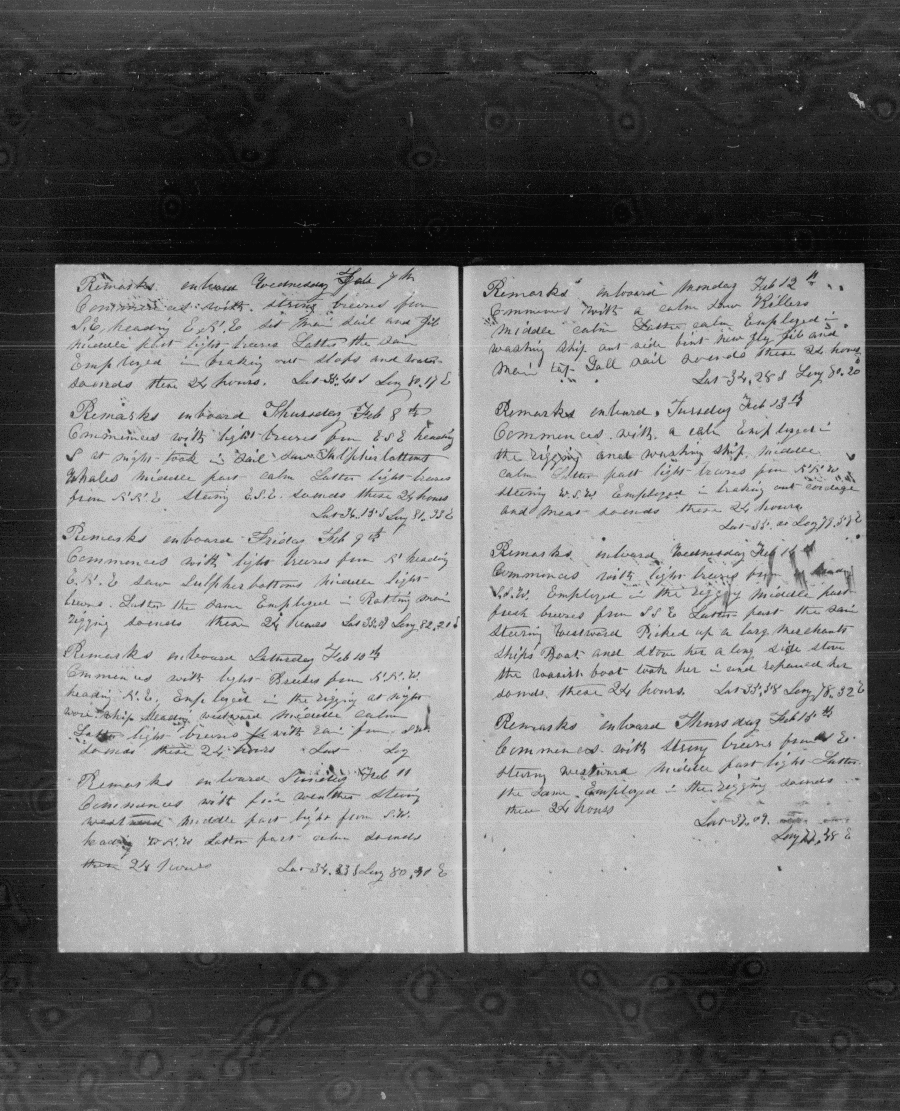 Remarks onboard Wednesday Feb 7th
Commences with strong breeses from
S.E. heading E.N.E set main sail and Jib
middle part light breeses Latter the sam
Employed in braking out slops and
soends these 24 hours. Lat 35.40 S Long 80.17 E
Remarks onboard Thursday Feb 8th
Commences with light breeses from E.S.E heading
S at night took in sail saw Sulpher bottom
Whales middle part calm Latter light breses
from N.N.E stearing E.S.E. soends these 24 hours
Lat 36.13 S Long 81.33 E
Remarks onboard Friday Feb 9th
Commences with light breeses from N heading
E.N.E saw Sulpher bottoms middle light
breses. Latter the same Employed in Ratling main
rigging soends these 24 hours Lat Long 82.21 E
Remarks onboard Saturday Feb 10th
Commences with light Breeses from N.N.W.
heading N.E. Employed in the rigging at night
wore ship heading westward middle calm
Latter light breeses with rain from
soends these 24 hours Lat Log
Remarks onboard Sunday Feb 11
Commences with fine weather Steering
westward middle part light from S.W.
heading W.N.W Latter part calm soends
these 24 hours Lat 34.33 S Long 80.30 E
Remarks onboard Monday Feb 12th
Commences with a calm saw Killers
middle calm Latter calm Employed in
washing ship out side bent new fly jib and
main top Gall sail soends these 24 hours
Lat 34.28 S Long 80.20
Remarks onboard Tuesday Feb 13th
Commences with a calm Employed in
the rigging and washing ship. middle
calm Latter part light breeses from N.N.W
steering W.S.W Employed in braking out cordage
and meat soends these 24 hours
Lat 35. Long 79.57 E
Remarks onboard Wednesday Feb 14
Commences with light breeses from heading
S.S.W. Employed in the rigging middle part
fresh breeses from S.S.E Latter part the sam
Steering Westward Picked up a larg merchants
ships Boat and stove her a long side stove
the waist boat took her in and repaired her
soends these 24 hours. Lat 35.38 Long 78.32 E
Remarks onboard Thursday Feb 15th
Commences with Strong breeses from S E.
stering westward middle part light Latter
the same Employed in the rigging soends
these 24 hours
Lat 37.09.
Long 77.38 E